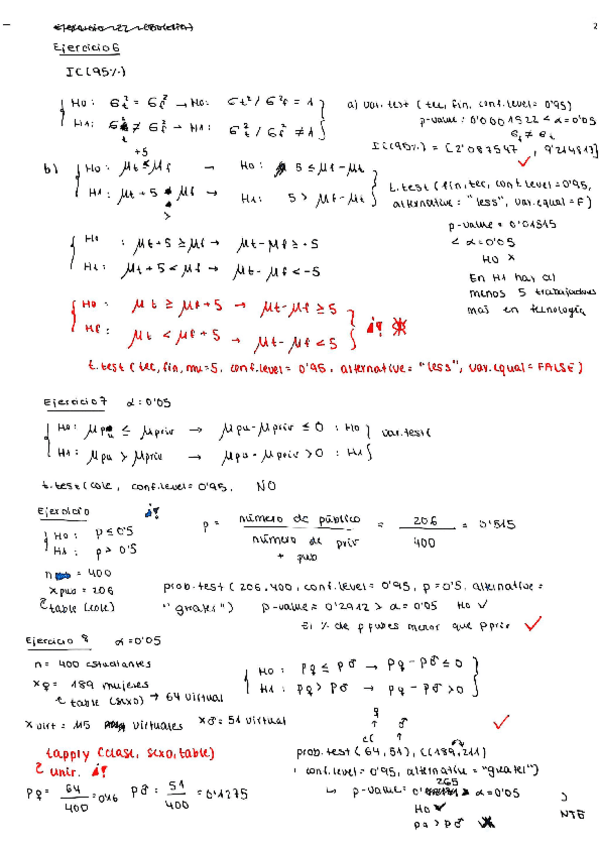 2
Ejercicio 6
IC(95%)
H0: σ²t = σ²f → H0: σt²/σ²f = 1
H1: σ²t ≠ σ²f → H1: σ²t/σf² ≠ 1
a) var.test (tec, fin, conf.level= 0'95)
p-value: 0'0001522 < α=0'05
σf ≠ σt
IC(95%) = [2'087547 , 9'214813]
b)
+5
H0: μt ≤ μf → H0: 5 ≤ μf-μt
H1: μt + 5 > μf → H1: 5 > μf-μt
t.test (fin, tec, conf.level=0'95,
alternative: "less", var.equal=F)
p-value = 0'01515
< α=0'05
H0 x
En H1 hay al
menos 5 trabajadores
más en tecnología
H0 : μt+5 ≥ μf → μt-μf ≥ -5
H1: μt+5 < μf → μt-μf < -5
H0: μt ≥ μf+5 → μt-μf ≥ 5
H1: μt < μf+5 → μt-μf < 5
t.test (tec, fin, mu=5, conf.level= 0'95, alternative= "less", var.equal=FALSE)
Ejercicio 7 α=0'05
H0: μpu ≤ μpriv → μpu-μpriv ≤ 0 : H0
H1: μpu > μpriv → μpu-μpriv > 0 : H1
var.test(
t.test (cole, conf.level= 0'95. NO
Ejercicio
H0: p ≤ 0'5
H1: p > 0'5
p = número de público / número de priv + pub = 206 / 400 = 0'515
n = 400
x pub = 206
table (cole)
prob.test (206,400, conf.level= 0'95, p=0'5, alternative=
"greater") p-value = 0'2912 > α=0'05 H0 ✓
El % de p pub es menor que p priv ✓
Ejercicio 8 α=0'05
n= 400 estudiantes
x♀ = 189 mujeres
table (sexo) → 64 virtual
x virt = 115 virtuales x♂ = 51 virtual
H0 : p♀ ≤ p♂ → p♀ - p♂ ≤ 0
H1 : p♀ > p♂ → p♀ - p♂ > 0
♀ ♂
↑ ↑
c(
prob.test (64,51), c(189,211)
, conf.level= 0'95, alternative = "greater")
265
↳ p-value: 0' > α=0'05
H0 ✓
p♀ > p♂
tapply (clase, sexo, table)
unir.
p♀ = 64/400 = 0'16 p♂ : 51/400 = 0'1275
NTE